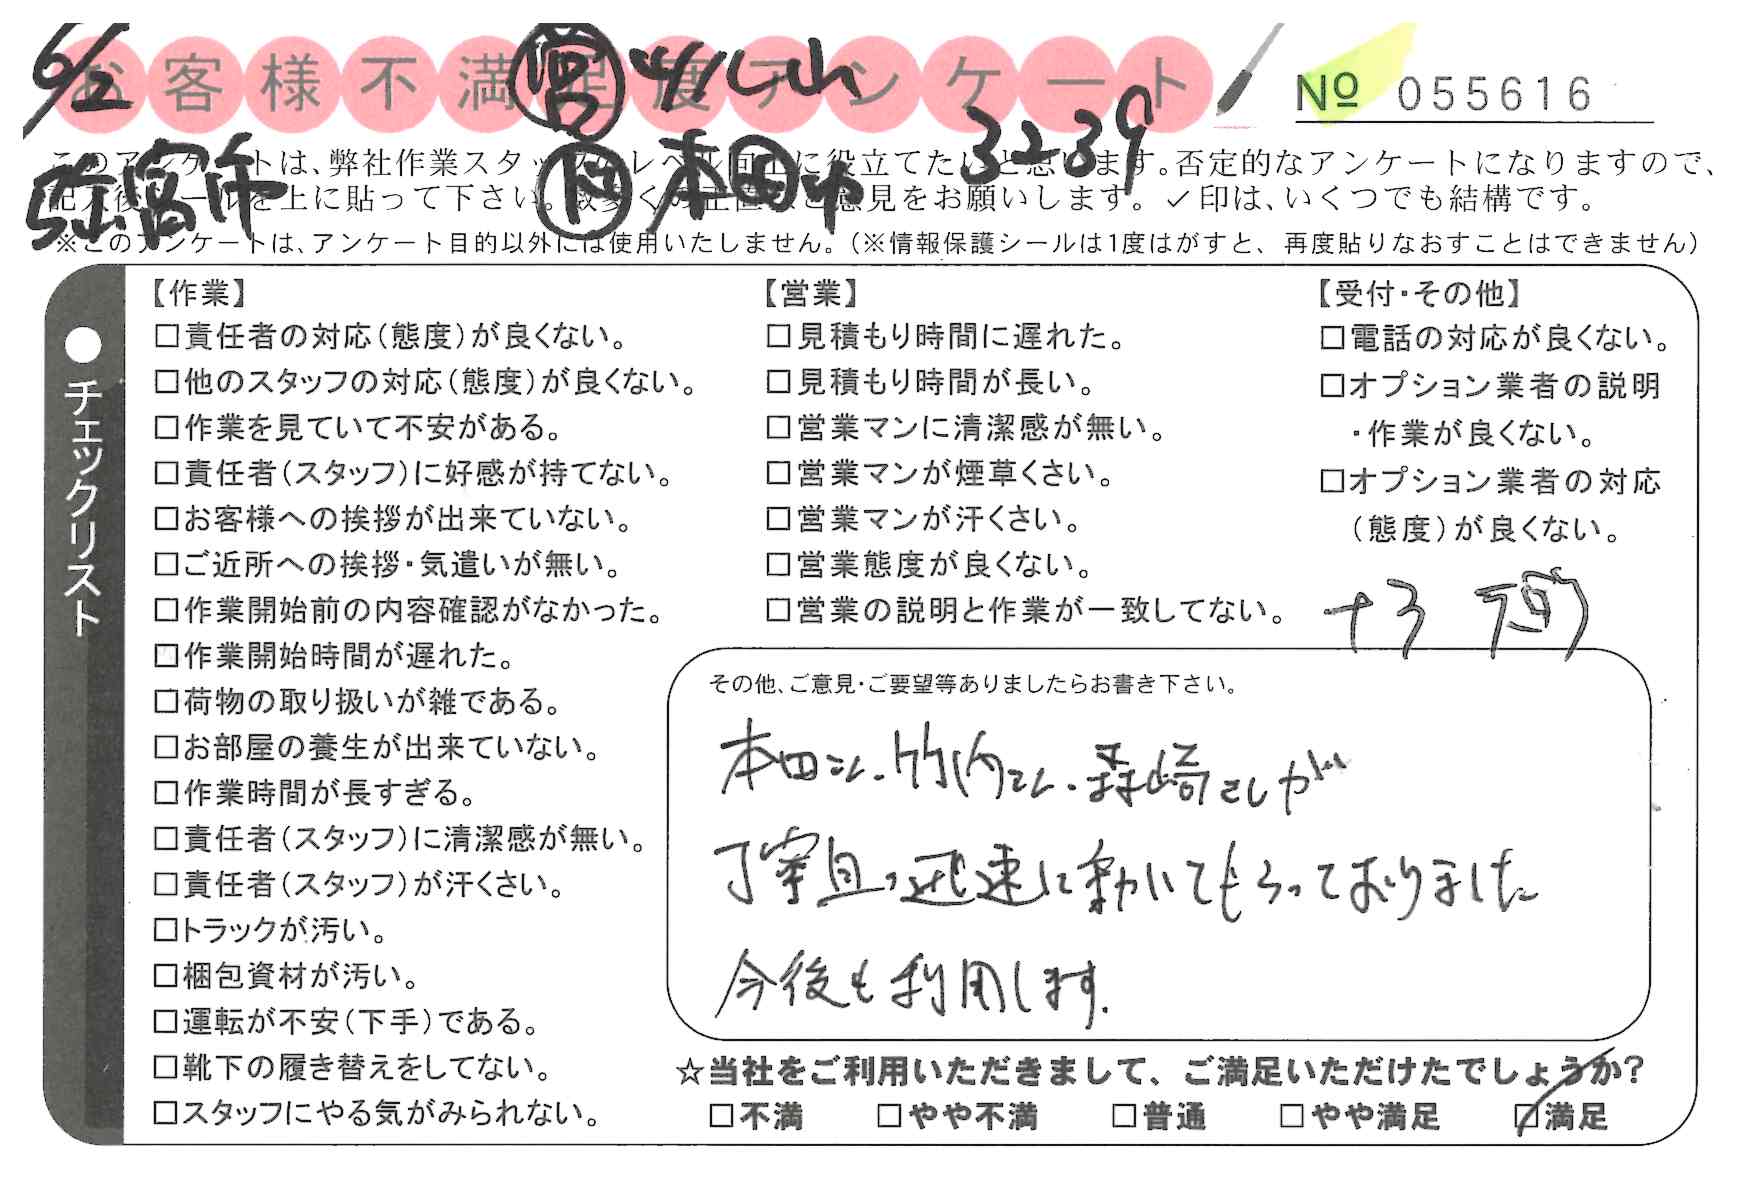 6/2
お客様不満足度アンケート
営
№ 055616
3239
このアンケートは、弊社作業スタッフのレベル向上に役立てたいと思います。否定的なアンケートになりますので、
記入後シールを上に貼って下さい。数多くの正直なご意見をお願いします。✓印は、いくつでも結構です。
本田
※このアンケートは、アンケート目的以外には使用いたしません。（※情報保護シールは1度はがすと、再度貼りなおすことはできません）
●チェックリスト
【作業】
□責任者の対応（態度）が良くない。
□他のスタッフの対応（態度）が良くない。
□作業を見ていて不安がある。
□責任者（スタッフ）に好感が持てない。
□お客様への挨拶が出来ていない。
□ご近所への挨拶・気遣いが無い。
□作業開始前の内容確認がなかった。
□作業開始時間が遅れた。
□荷物の取り扱いが雑である。
□お部屋の養生が出来ていない。
□作業時間が長すぎる。
□責任者（スタッフ）に清潔感が無い。
□責任者（スタッフ）が汗くさい。
□トラックが汚い。
□梱包資材が汚い。
□運転が不安（下手）である。
□靴下の履き替えをしてない。
□スタッフにやる気がみられない。
【営業】
□見積もり時間に遅れた。
□見積もり時間が長い。
□営業マンに清潔感が無い。
□営業マンが煙草くさい。
□営業マンが汗くさい。
□営業態度が良くない。
□営業の説明と作業が一致してない。
【受付・その他】
□電話の対応が良くない。
□オプション業者の説明
・作業が良くない。
□オプション業者の対応
（態度）が良くない。
その他、ご意見・ご要望等ありましたらお書き下さい。
本田さん、竹内さん、森崎さんが
丁寧且つ迅速に動いてもらっておりました
今後も利用します.
☆当社をご利用いただきまして、ご満足いただけたでしょうか？
□不満 □やや不満 □普通 □やや満足 □満足